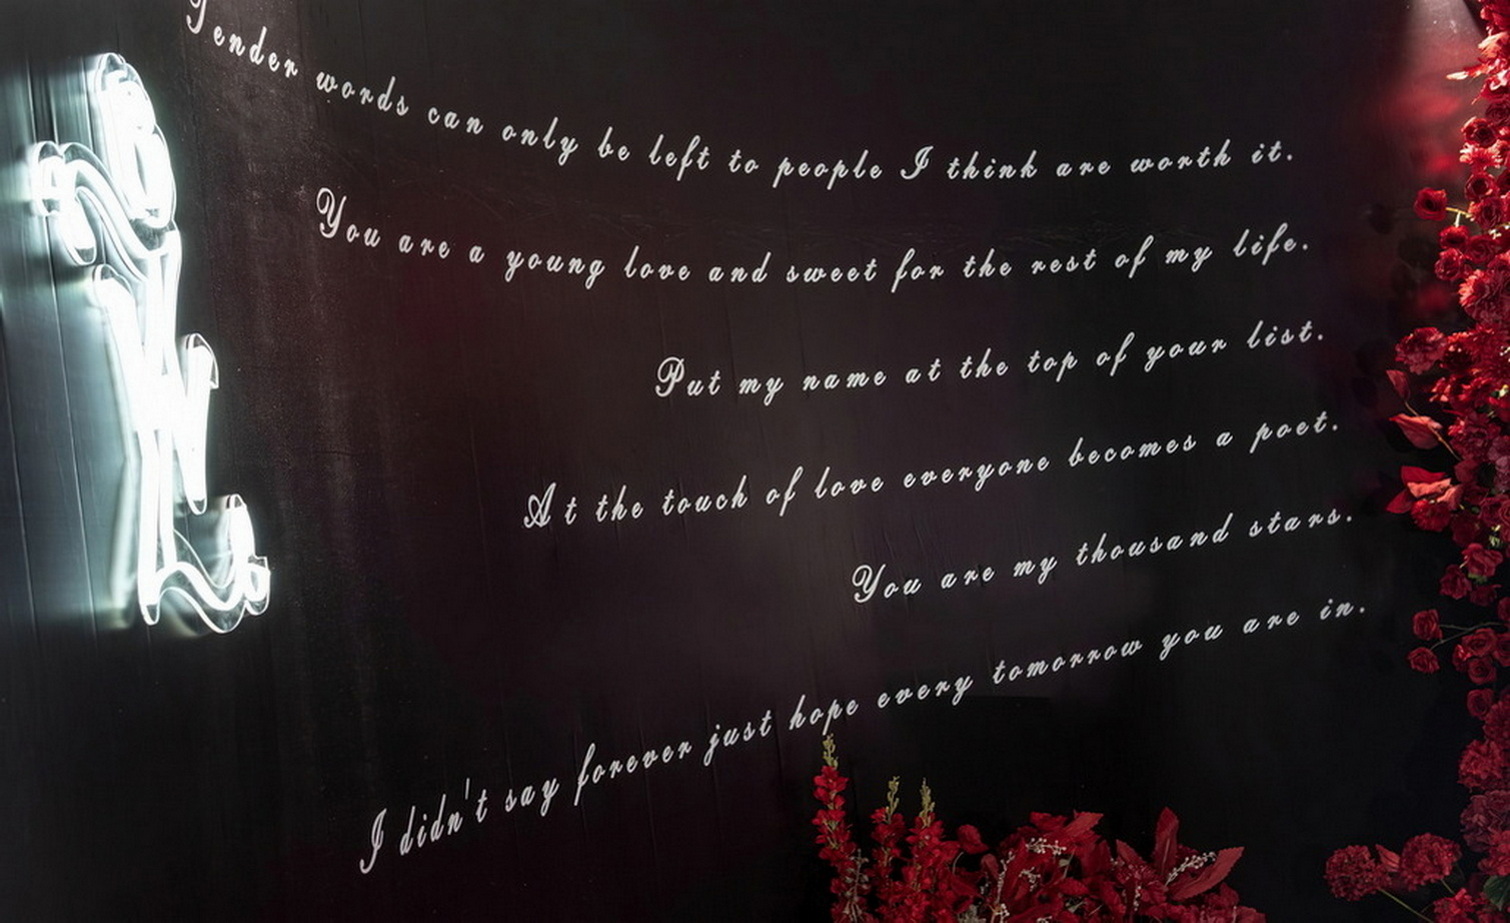 Tender words can only be left to people I think are worth it.
You are a young love and sweet for the rest of my life.
Put my name at the top of your list.
At the touch of love everyone becomes a poet.
You are my thousand stars.
I didn't say forever just hope every tomorrow you are in.